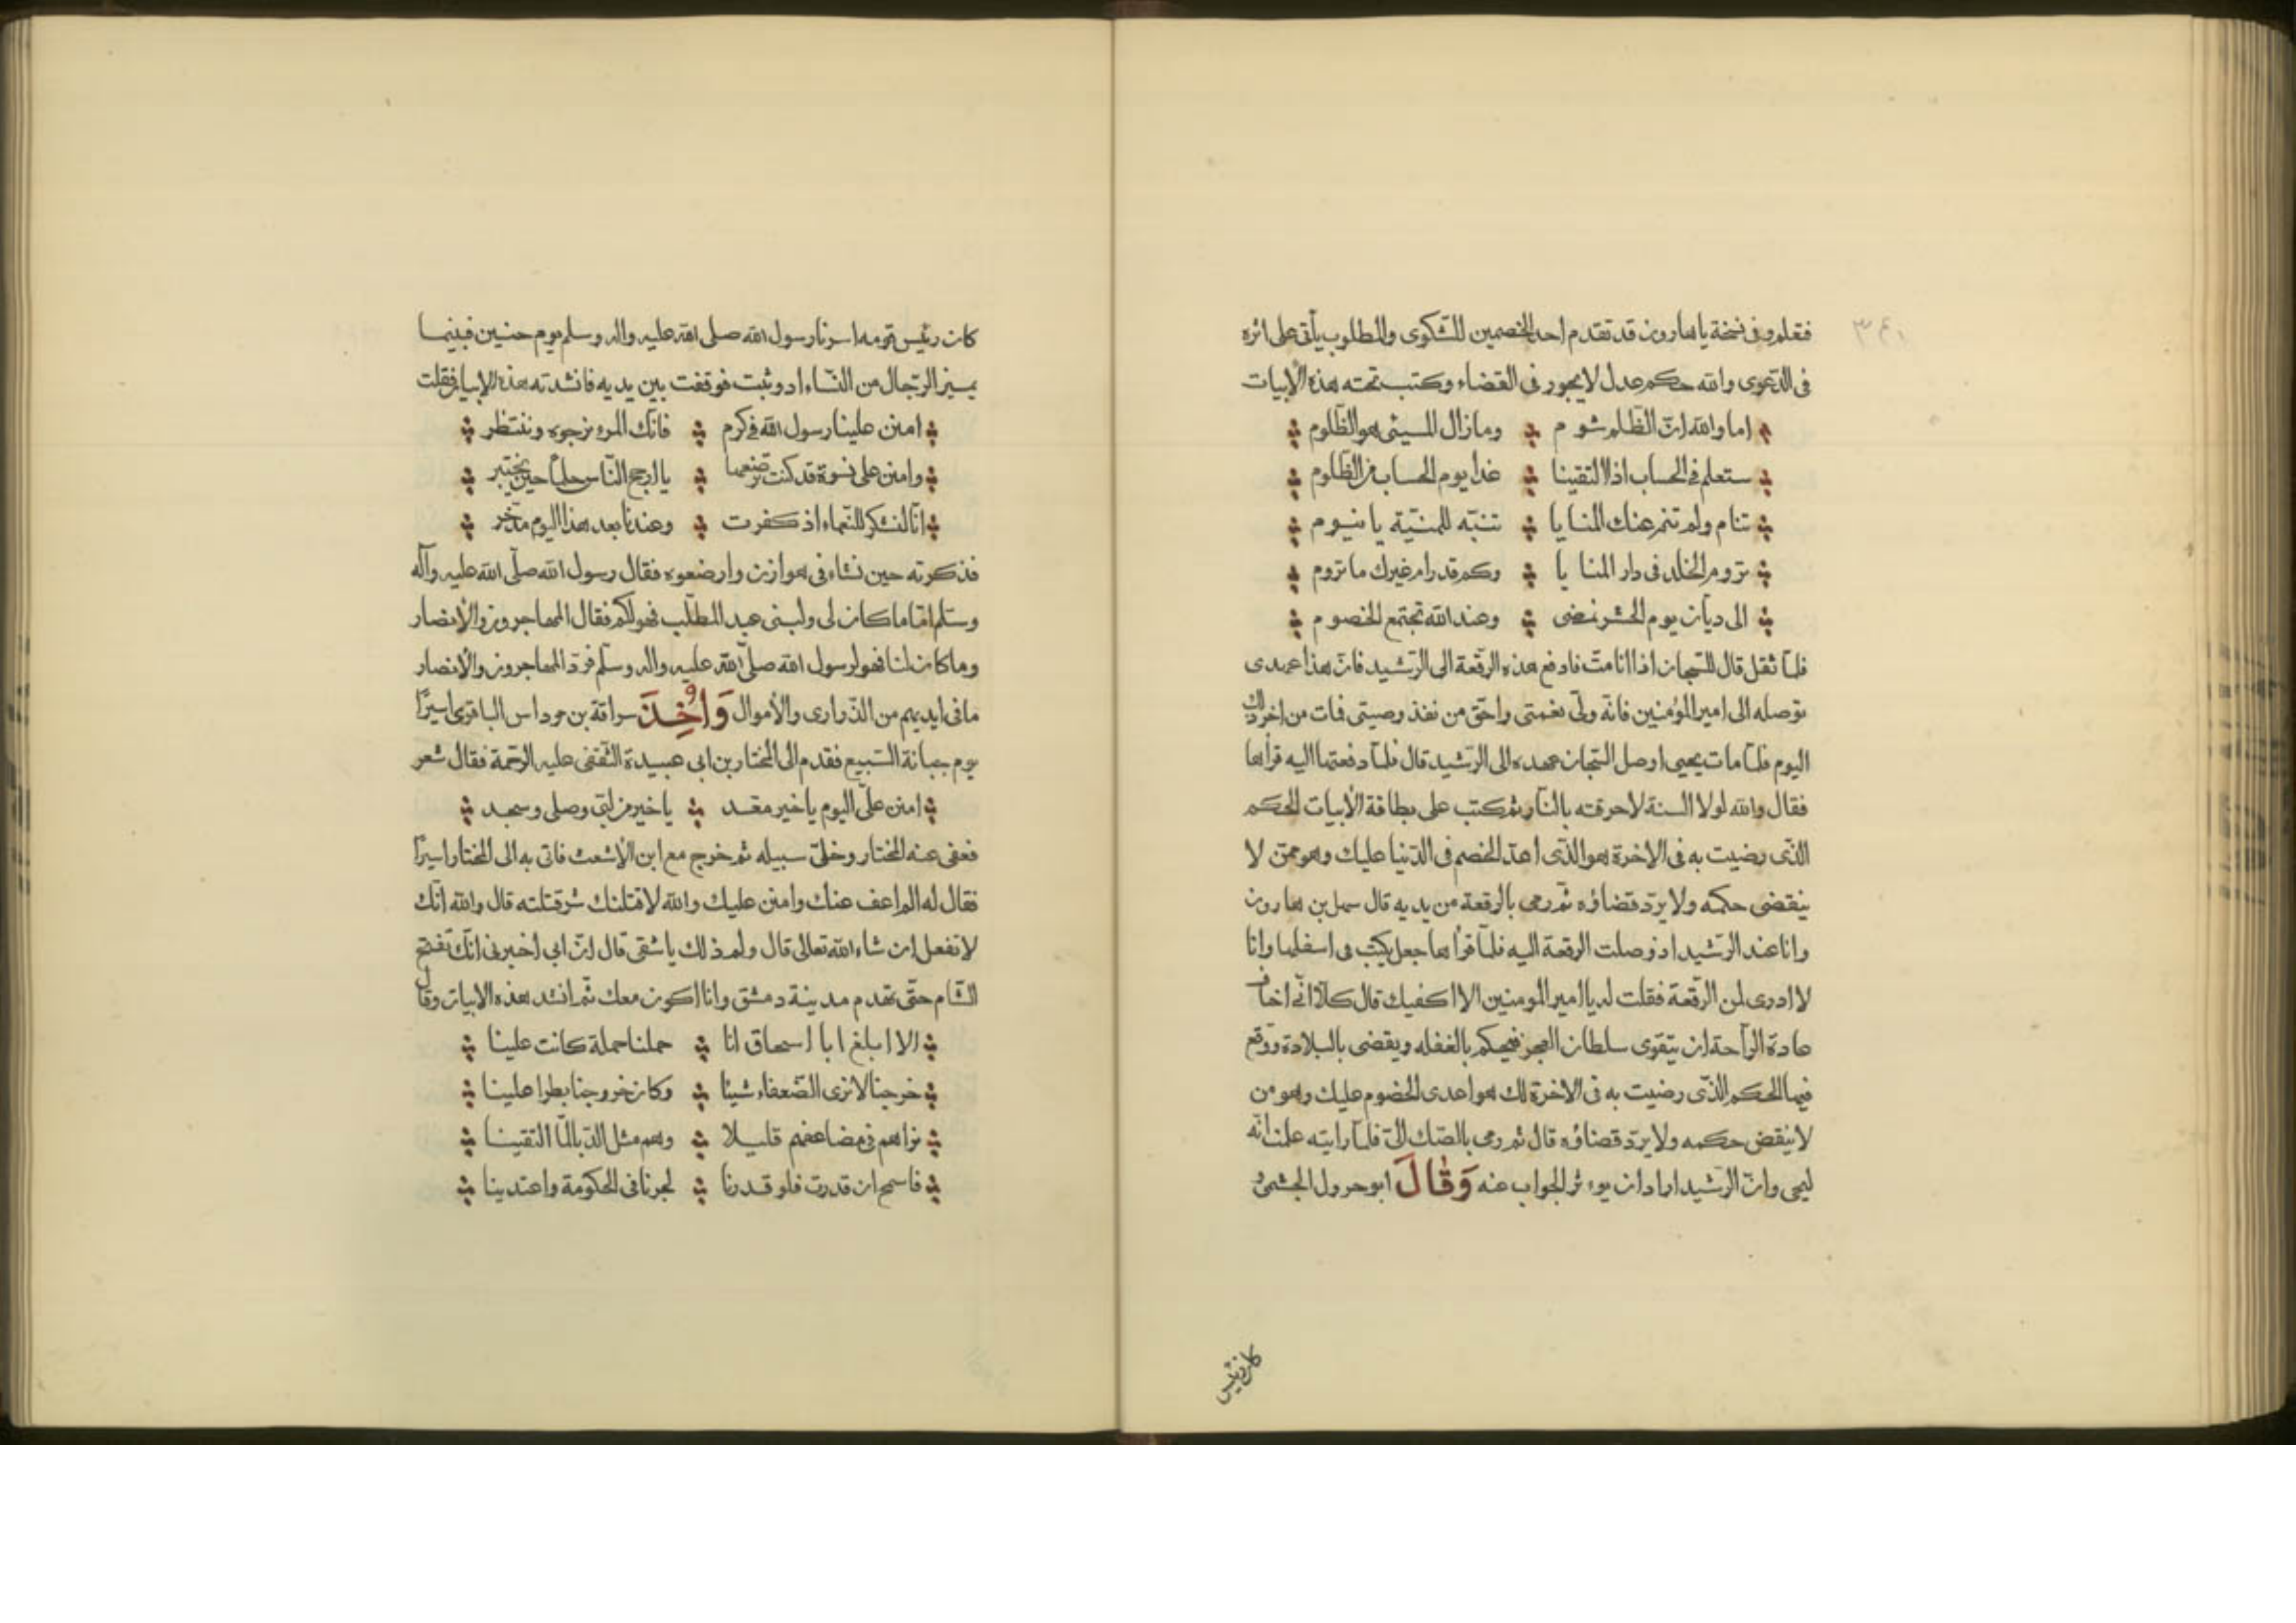 فقلم وفى نسخة ياهارون قد تقدم احد الخصمين للشكوى والمطلوب يأتى على اثره
فى الدّعوى والله حكم عدل لا يجور فى القضاء وكتب تحته هذه الأبيات
اما والله انّ الظلم شوم وما زال المسيئ هو الظّلوم
ستعلم فى الحساب اذا التقينا غدا يوم الحساب من الظّلوم
تنام ولم تنم عنك المنايا تنبّه للمنيّة يا نيوم
تروم الخلد فى دار المنايا وكم قد رام غيرك ما تروم
الى ديّان يوم الحشر نمضى وعند الله تجتمع الخصوم
فلمّا ثقل قال للسّجان اذا انا متّ فادفع هذه الرّقعة الى الرّشيد فانّ هذا عهدى
توصله الى امير المؤمنين فانّه ولىّ نعمتى واحقّ من نفذ وصيتى فمات من اخر ذلك
اليوم فلمّا مات يحيى اوصل السّجان عهده الى الرّشيد قال فلمّا دفعتها اليه قرأها
فقال والله لولا السنة لاحرقته بالنّار ثم كتب على بطاقة الأبيات الحكم
الذّى رضيت به فى الاخرة هو الذّى اعدّ الخصم فى الدّنيا عليك وهو ممّن لا
ينقضى حكمه ولا يردّ قضاؤه ثمّ رمى بالرقعة من يديه قال سهل بن هارون
وانا عند الرّشيد اذ وصلت الرقعة اليه فلمّا قرأها جعل يكتب فى اسفلها وانا
لا ادرى لمن الرقعة فقلت له يا امير المومنين الا اكفيك قال كلّا انّى اخاف
عادة الرّاحة ان يتقوى سلطان العجز فيحكم بالغفله ويقضى بالبلادة ووقع
فيها الحكم الذّى رضيت به فى الاخرة لك هو اعدى الخصوم عليك وهو من
لا ينقض حكمه ولا يردّ قضاؤه قال ثم رمى بالصّك الىّ فلمّا رايته علمت انّه
ليحى وانّ الرّشيد اراد ان يوءثر الجواب عنه وَقَالَ ابو جرول الجشمى و
كان رئيس
كان رئيس قومه اسرنا رسول الله صلى الله عليه واله وسلم يوم حنين فبينما
يميز الرّجال من النّساء اذ وثبت فوقفت بين يديه فانشدته هذه الابيات فقلت
امنن علينا رسول الله فى كرم فانّك المرء نرجوه وننتظر
وامنن على نسوة قد كنت ترضعها يا ارجح النّاس حلمًا حين يختبر
انّا لنشكر للنّعماء اذ كفرت وعندنا بعد هذا اليوم مدّخر
فذكرته حين نشاء فى هوازن وارضعوه فقال رسول الله صلّى الله عليه وآله
وسلّم امّا ما كان لى ولبنى عبد المطّلب فهو لكم فقال المهاجرون والأنصار
وما كان لنا فهو لرسول الله صلّى الله عليه واله وسلّم فردّ المهاجرون والانصار
ما فى ايديهم من الذّرارى والأموال وَاُخِذَ سراقة بن مرداس البارقى اسيرًا
يوم جبانة السّبيع فقدم الى المختار بن ابى عبيدة الثّقفى عليه الرّحمة فقال شعر
امنن علىّ اليوم يا خير معّد يا خير من لبّى وصلى وسجد
فعفى عنه المختار وخلىّ سبيله ثم خرج مع ابن الأشعث فاتى به الى المختار اسيرًا
فقال له الم اعف عنك وامنن عليك والله لاقتلنك شر قتلته قال والله انّك
لا تفعل ان شاء الله تعالى قال ولم ذلك يا شقى قال انّ ابى اخبرنى انّك تفتح
الشّام حتّى تهدم مدينة دمشق وانا اكون معك ثمّ انشد هذه الابيات وقال
الا ابلغ ابا اسحاق انا حملنا حملة كانت علينا
خرجنا لا نرى الضّعفاء شيئا وكان خروجنا بطرا علينا
نراهم فى مضاعفهم قليلا وهم مثل الدّبا لمّا التقينا
فاسمح ان قدرت فلو قدرنا لجرنا فى الحكومة واعتدينا